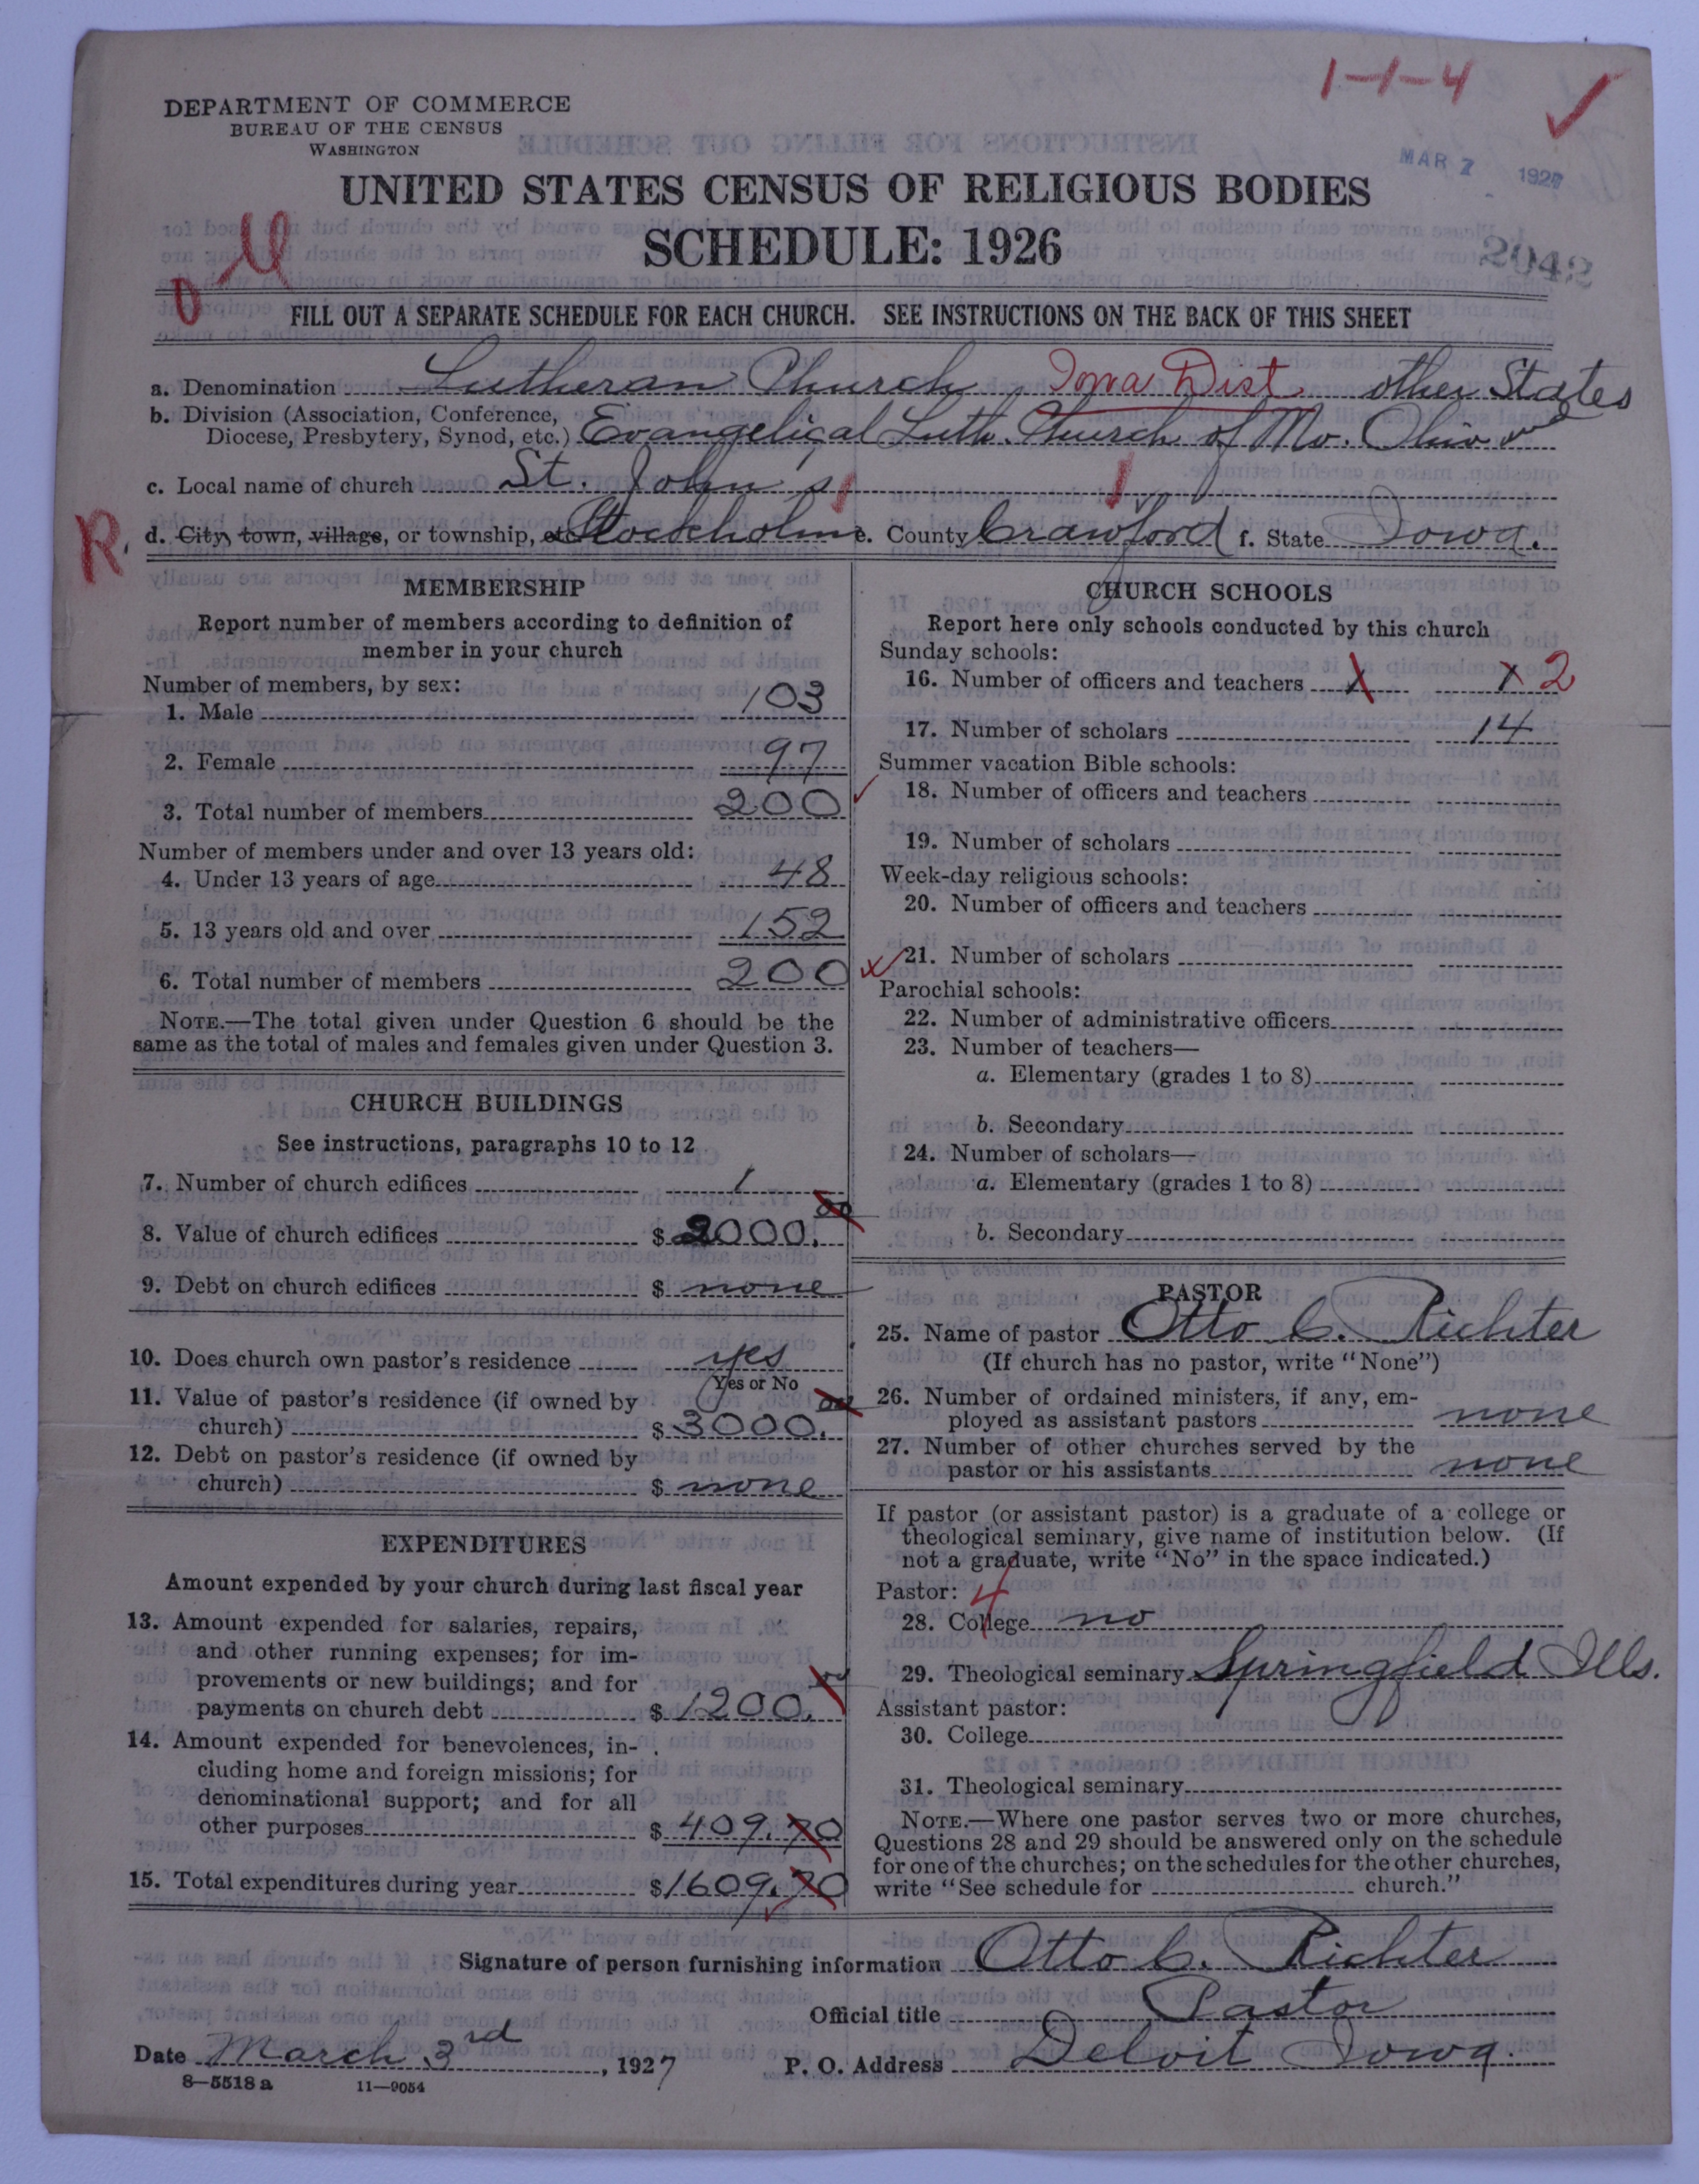 1-1-4
DEPARTMENT OF COMMERCE
BUREAU OF THE CENSUS
WASHINGTON
MAR 7 1927
UNITED STATES CENSUS OF RELIGIOUS BODIES
SCHEDULE: 1926
2042
FILL OUT A SEPARATE SCHEDULE FOR EACH CHURCH. SEE INSTRUCTIONS ON THE BACK OF THIS SHEET
a. Denomination Lutheran Church, Iowa Dist. other States
b. Division (Association, Conference,
Diocese, Presbytery, Synod, etc.) Evangelical Luth. Church of Mo. Ohio and
c. Local name of church St. John's
R. d. City, town, village, or township, etc. Stockholm e. County Crawford f. State Iowa.
MEMBERSHIP
Report number of members according to definition of
member in your church
Number of members, by sex:
1. Male 103
2. Female 97
3. Total number of members 200
Number of members under and over 13 years old:
4. Under 13 years of age 48
5. 13 years old and over 152
6. Total number of members 200
NOTE.—The total given under Question 6 should be the
same as the total of males and females given under Question 3.
CHURCH BUILDINGS
See instructions, paragraphs 10 to 12
7. Number of church edifices 1
8. Value of church edifices $ 2000.00
9. Debt on church edifices $ none
10. Does church own pastor's residence yes
Yes or No
11. Value of pastor's residence (if owned by
church) $ 3000.00
12. Debt on pastor's residence (if owned by
church) $ none
EXPENDITURES
Amount expended by your church during last fiscal year
13. Amount expended for salaries, repairs,
and other running expenses; for im-
provements or new buildings; and for
payments on church debt $ 1200.00
14. Amount expended for benevolences, in-
cluding home and foreign missions; for
denominational support; and for all
other purposes $ 409.70
15. Total expenditures during year $ 1609.70
CHURCH SCHOOLS
Report here only schools conducted by this church
Sunday schools:
16. Number of officers and teachers x x 2
17. Number of scholars 14
Summer vacation Bible schools:
18. Number of officers and teachers
19. Number of scholars
Week-day religious schools:
20. Number of officers and teachers
21. Number of scholars
Parochial schools:
22. Number of administrative officers
23. Number of teachers—
a. Elementary (grades 1 to 8)
b. Secondary
24. Number of scholars—
a. Elementary (grades 1 to 8)
b. Secondary
PASTOR
25. Name of pastor Otto C. Richter
(If church has no pastor, write "None")
26. Number of ordained ministers, if any, em-
ployed as assistant pastors none
27. Number of other churches served by the
pastor or his assistants none
If pastor (or assistant pastor) is a graduate of a college or
theological seminary, give name of institution below. (If
not a graduate, write "No" in the space indicated.)
Pastor: 4
28. College no
29. Theological seminary Springfield Ills.
Assistant pastor:
30. College
31. Theological seminary
NOTE.—Where one pastor serves two or more churches,
Questions 28 and 29 should be answered only on the schedule
for one of the churches; on the schedules for the other churches,
write "See schedule for church."
Signature of person furnishing information Otto C. Richter
Official title Pastor
Date March 3rd, 1927 P. O. Address Deloit Iowa.
8—5518 a 11—9054